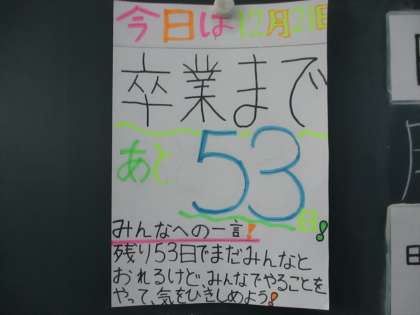 今日は12月21日
卒業まで
あと53日!
みんなへの一言!
残り53日でまだみんなと
おれるけど、みんなでやることを
やって、気をひきしめよう!